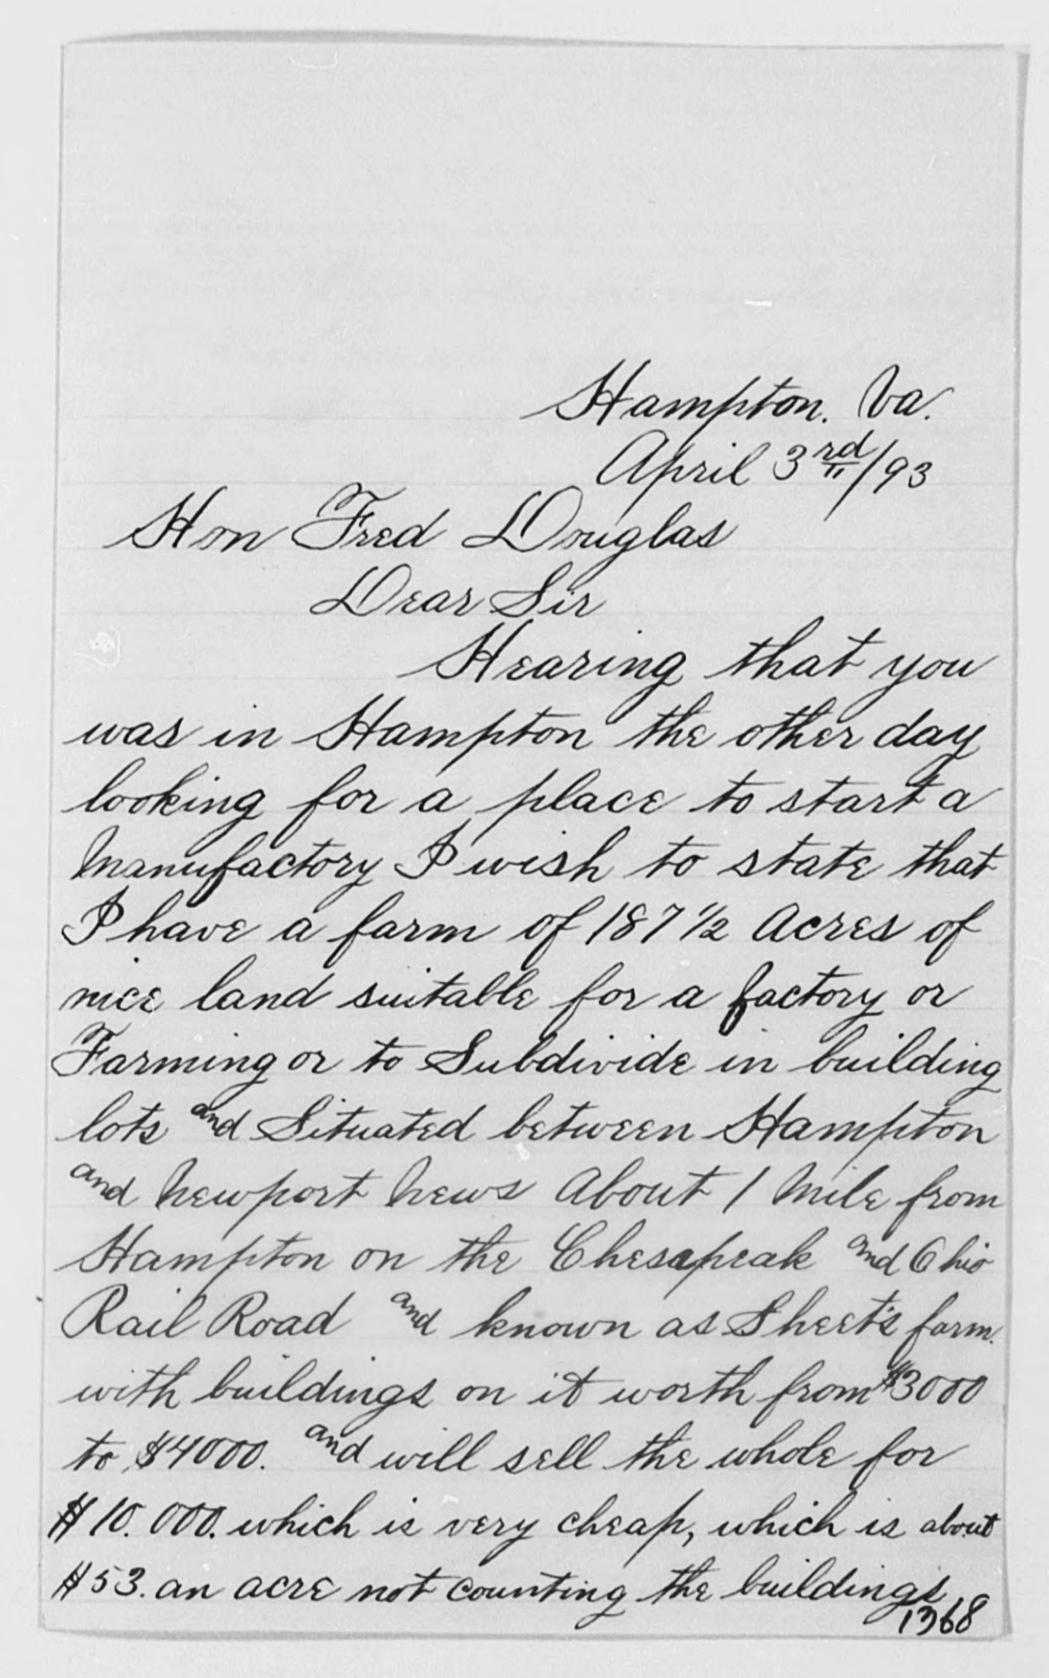 Hampton. Va.
April 3rd/93
Hon Fred Douglas
Dear Sir
Hearing that you
was in Hampton the other day
looking for a place to start a
Manufactory I wish to state that
I have a farm of 187 1/2 Acres of
nice land suitable for a factory or
Farming or to Subdivide in building
lots and Situated between Hampton
and Newport News About 1 Mile from
Hampton on the Chesapeak and Ohio
Rail Road and known as Sheet's farm.
with buildings on it worth from $3000
to $4000. and will sell the whole for
$10.000. which is very cheap, which is about
$53. an acre not counting the buildings
1368